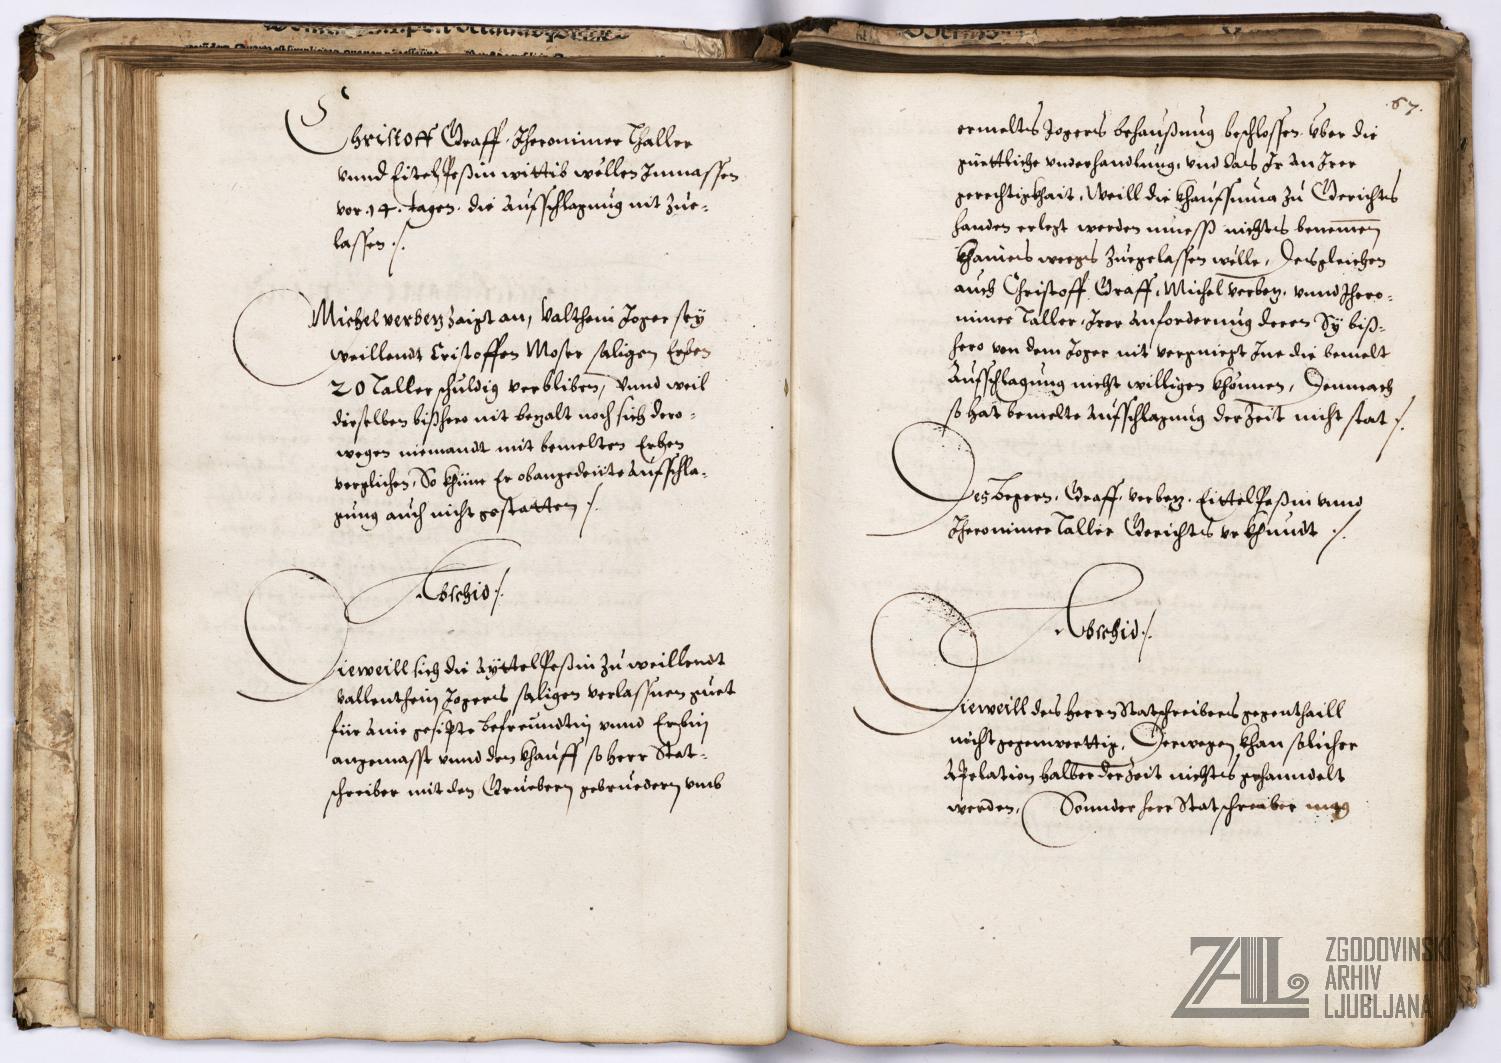 Christoff Graff, Iheronimer Thaller
vnnd Eitel Peßin wittib wellen Inmassen
vor .14. tagen. die Aufschlagung nit zue-
lassen ./.
Michel verbez zaigt an, Valthein Joger sey
weillendt Cristoffen Moser saligen Erben
20 Taller schuldig verbliben, vnnd weil
dieselben bißhero nit bezalt noch sich dero-
wegen niemandt mit bemelten Erben
verglichen, So khüne Er obangedeüte Aufschla-
gung auch nicht gestatten ./.
Abschid ./.
Dieweill sich die Aÿttel Peßin zu weillendt
Vallenthein Jogers saligen verlassnen guet
für ainr gesipte befreündtin vnnd Erbin
angemasst vnnd den khauff so herr Stat-
schreiber mit den Gruebern gebruedern vmb
67.
ermelts Jogers behaußung beschlossen. Vber die
güettliche vnderhandlung, vnd das Ir an Irer
gerechtigkhait, Weill die khaufsuma zu Gerichts
handen erlegt werden muess nichts benemen
khaines weegs zuegelassen welle, Desgleichen
auch Christoff Graff, Michel verbez, vnnd Ihero-
nimer Taller, Irer anforderung deren Sÿ biß-
hero von dem Joger nit vergniegt Ine die bemelt
Aufschlagung nicht willigen khönnen, Demnach
so hat bemelte Aufschlagung der Zeit nicht stat ./.
Des begern, Graff, verbez, Eittel Peßin vnnd
Iheronimer Taller Gerichts vrkhundt ./.
Abschid ./.
Dieweill des herrn Statschreibers gegenthaill
nicht gegenwerttig, Derwegen khan solicher
Apelation halber der Zeit nichts gehanndelt
werden, Sonnder herr Statschreiber mag
ZAL
ZGODOVINSKI
ARHIV
LJUBLJANA